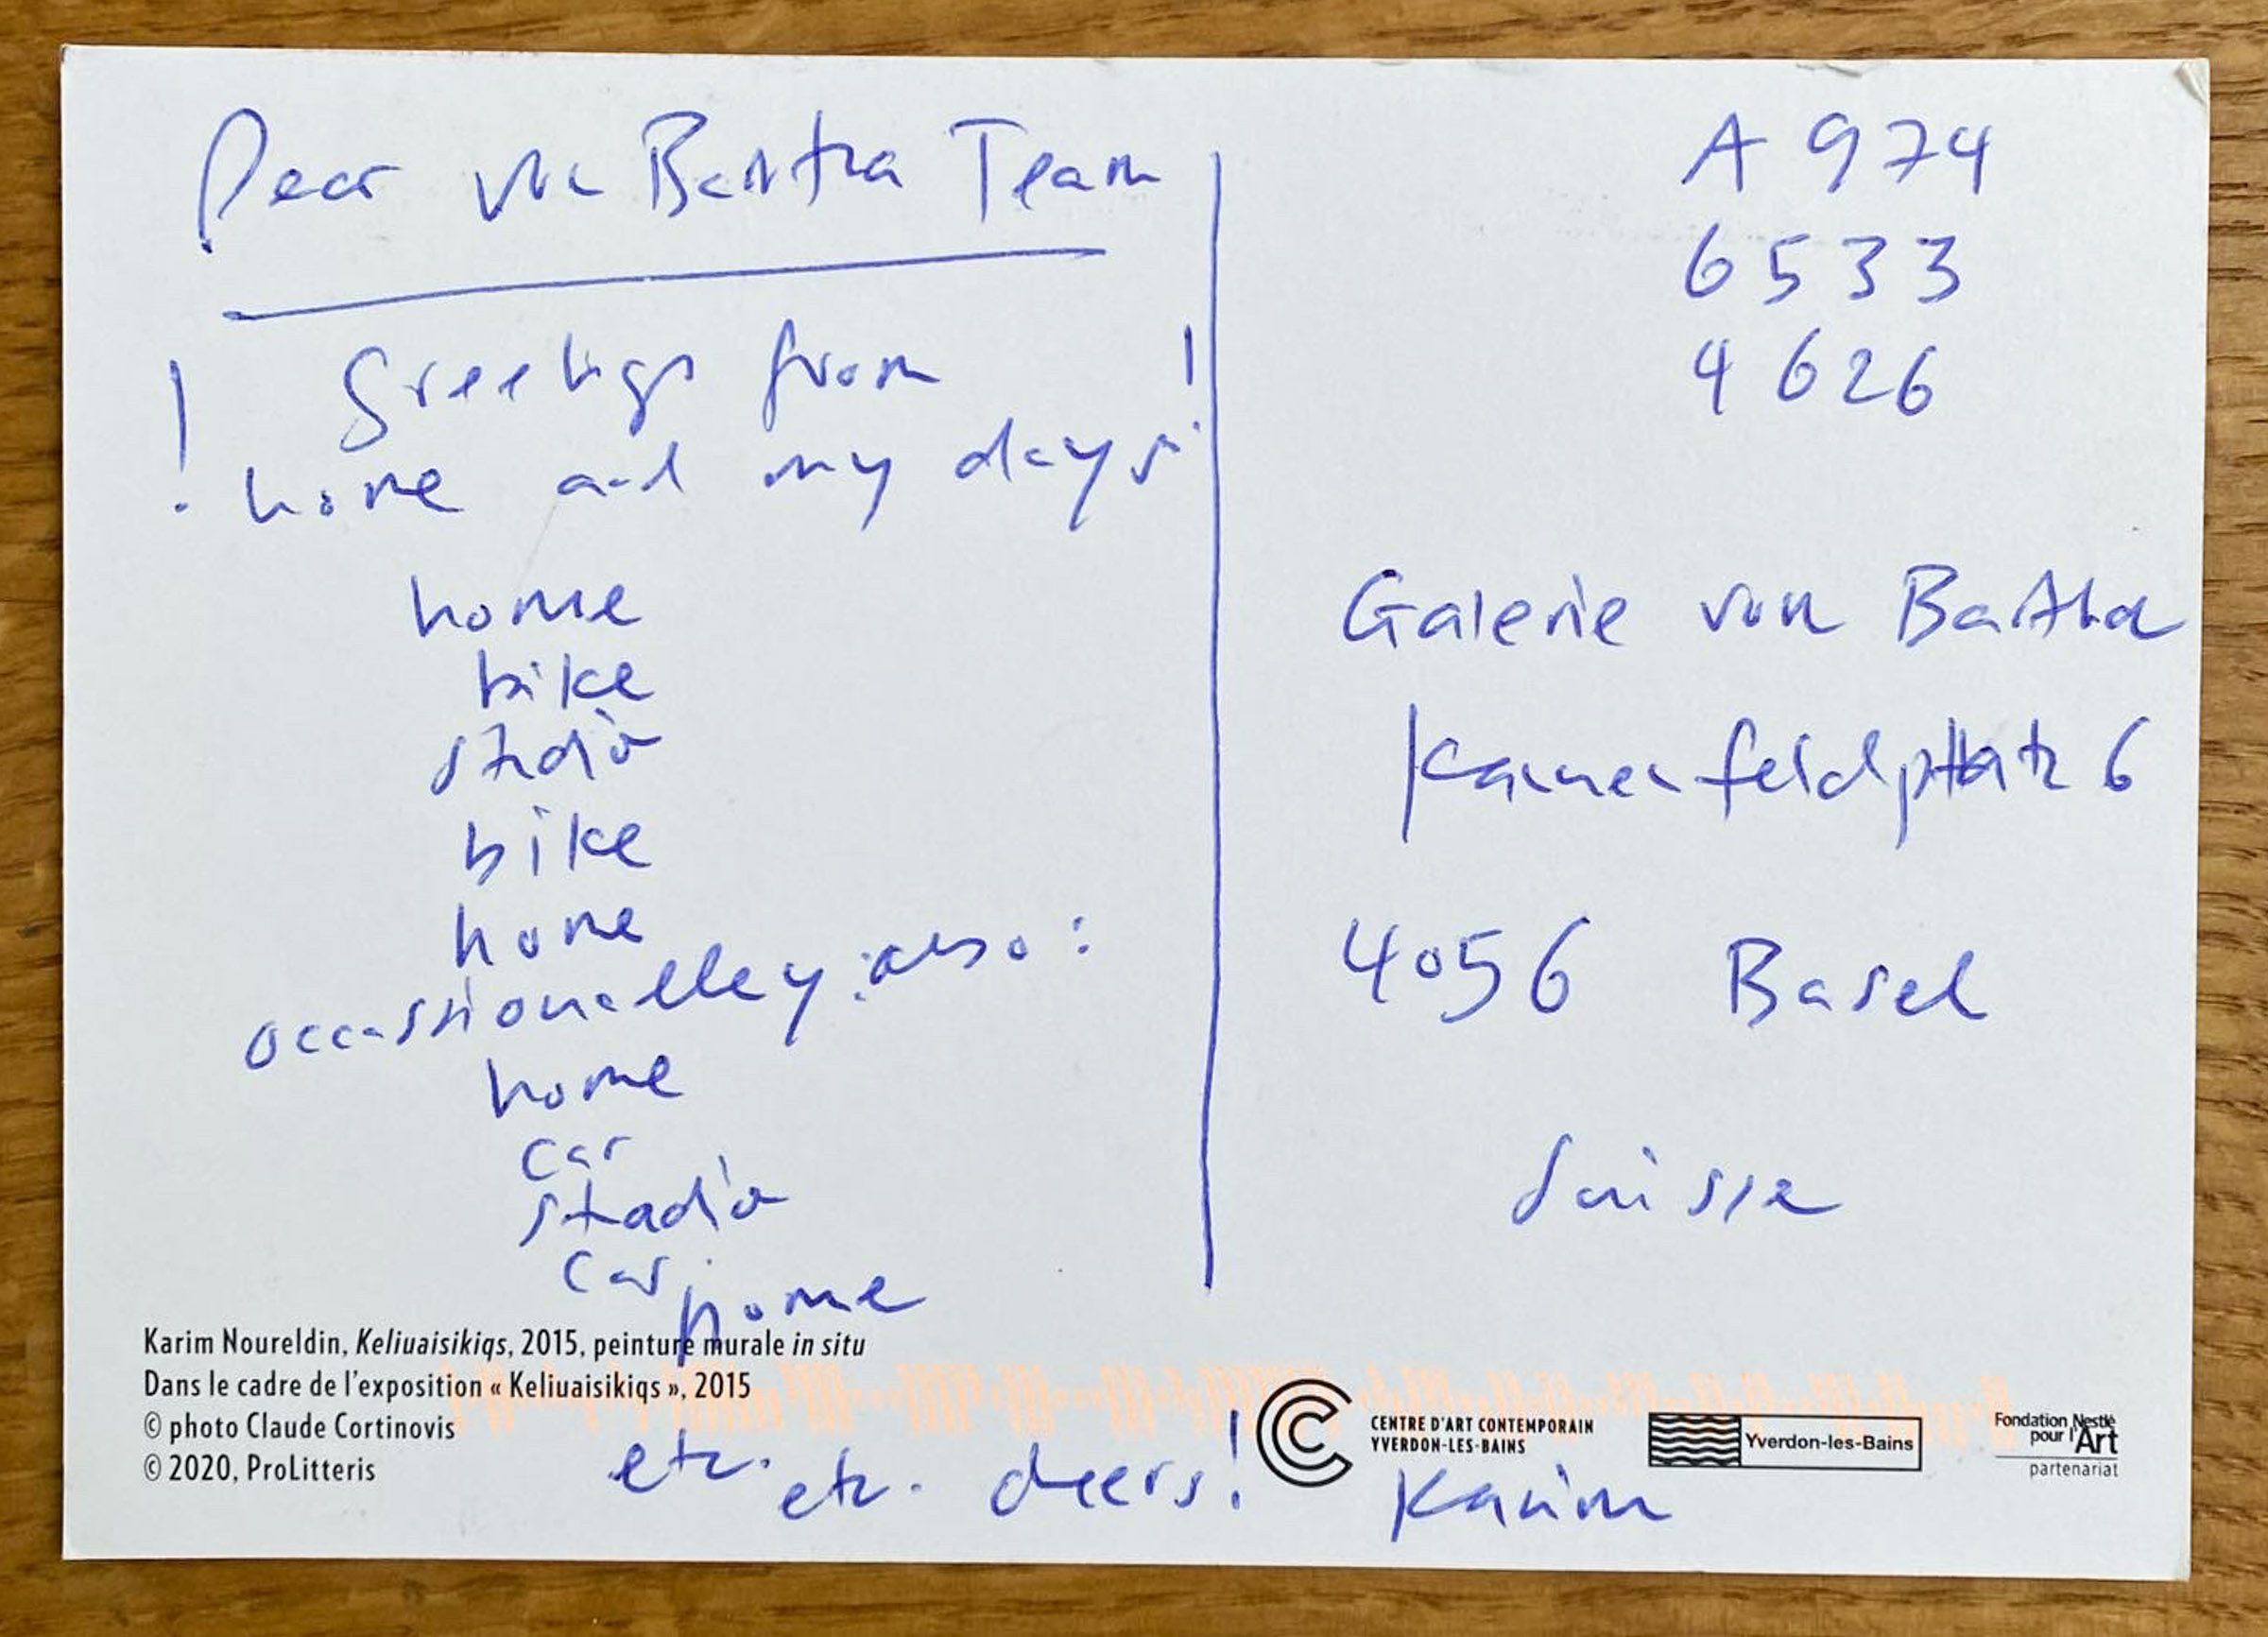 Dear von Bartha Team
! Greetings from !
home and my days
home
bike
studio
bike
home
occassionalley also:
home
car
studio
car
home
Karim Noureldin, Keliuaisikiqs, 2015, peinture murale in situ
Dans le cadre de l'exposition « Keliuaisikiqs », 2015
© photo Claude Cortinovis
© 2020, ProLitteris
etc. etc. cheers! Karim
A 974
6533
4626
Galerie von Bartha
Kannenfeldplatz 6
4056 Basel
Suisse
CENTRE D'ART CONTEMPORAIN
YVERDON-LES-BAINS
Yverdon-les-Bains
Fondation Nestlé
pour l'Art
partenariat